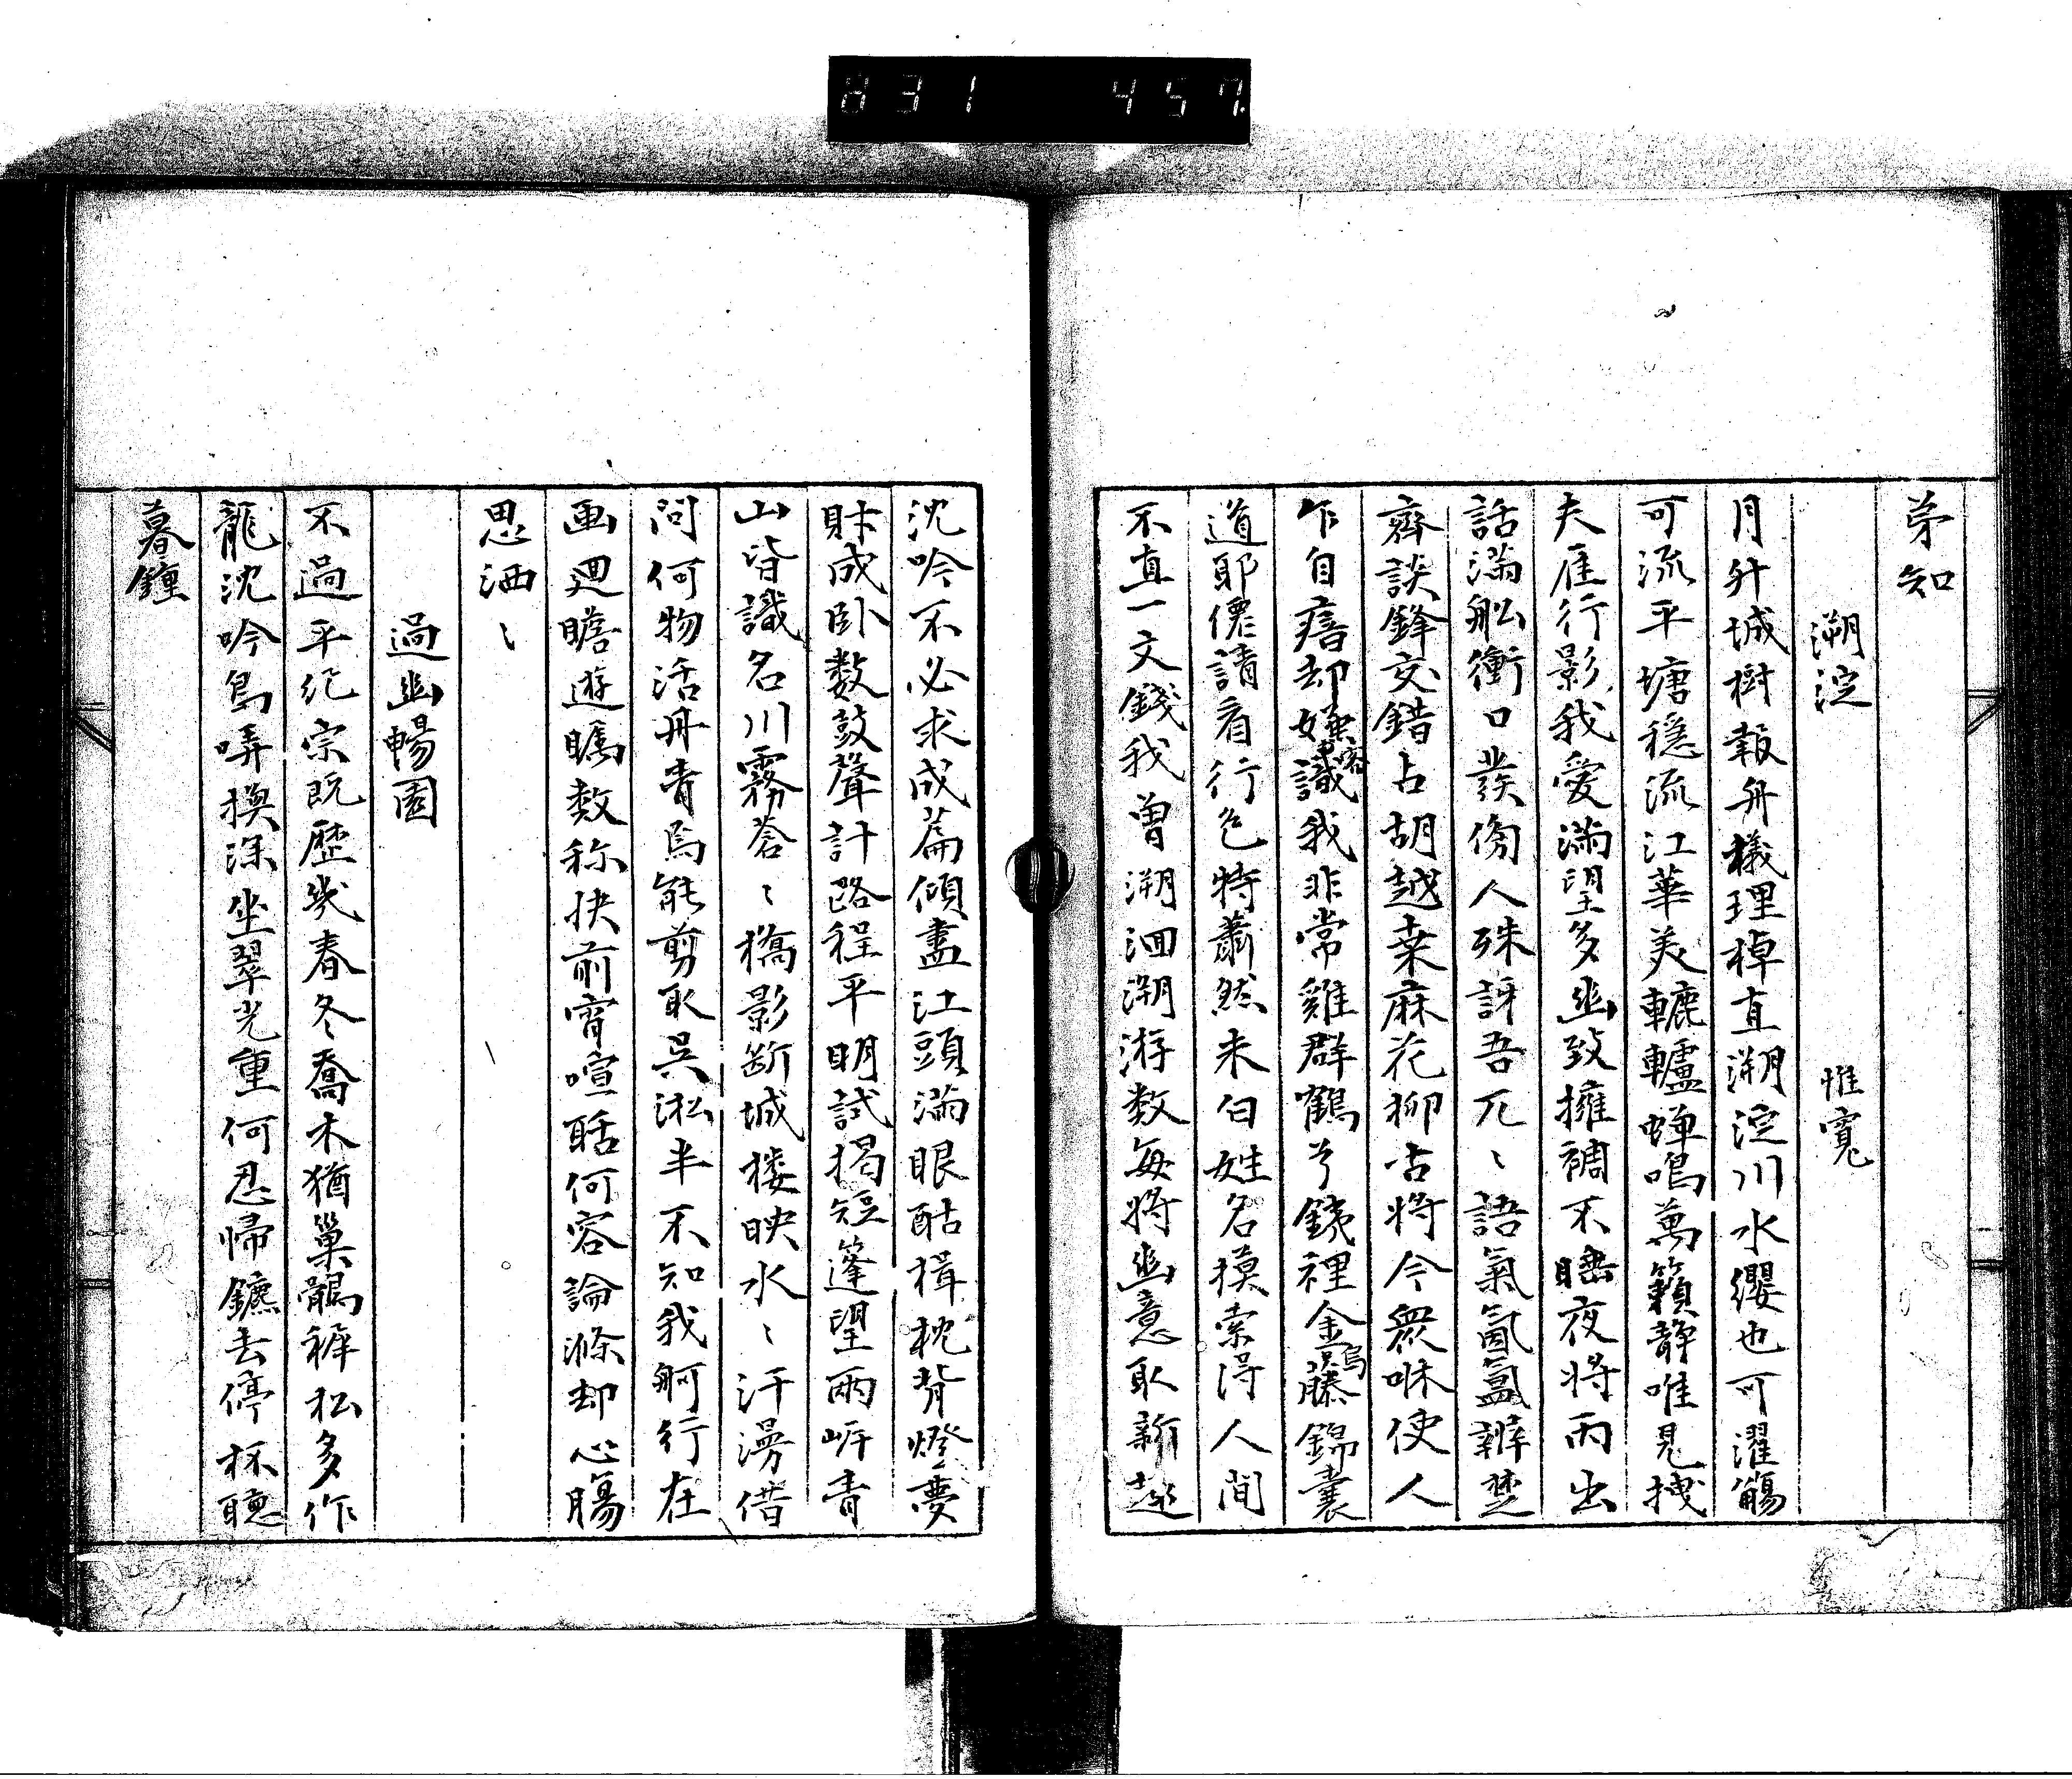 831 457
茅知
溯淀 惟寛
月升城樹報舟檥理棹直溯淀川水纓也可濯觴
可流平塘穏流江華美轆轤蝉鳴萬籟静唯見拽
夫雁行影我愛満望多幽致擁裯不睡夜将丙出
話満舩衝口發傍人殊訝吾兀〻語氣氤氳辨楚
齊談鋒交錯占胡越桒麻花柳古将今衆咻使人
乍自瘖却嫌客識我非常雞群鶴兮銕裡金烏藤錦嚢
道耶僊請看行色特蕭然未白姓名摸索得人間
不直一文錢我曽溯洄溯游数毎将幽意取新趣
沈吟不必求成篇傾盡江頭満眼酤楫枕背燈夢
財成卧数鼓聲計路程平明試掲短篷望兩岍青
山皆識名川霧蒼〻橋影断城楼映水〻汗漫借
問何物活丹青焉能剪取呉淞半不知我舸行在
画廻瞻遊矚数称快前宵喧聒何容論滌却心腸
思洒〻
過幽暢園
不過平紀宗既歴幾春冬喬木猶巣鶻稚松多作
龍沈吟鳥哢換深坐翠光重何忍帰鑣去停杯聴
暮鐘